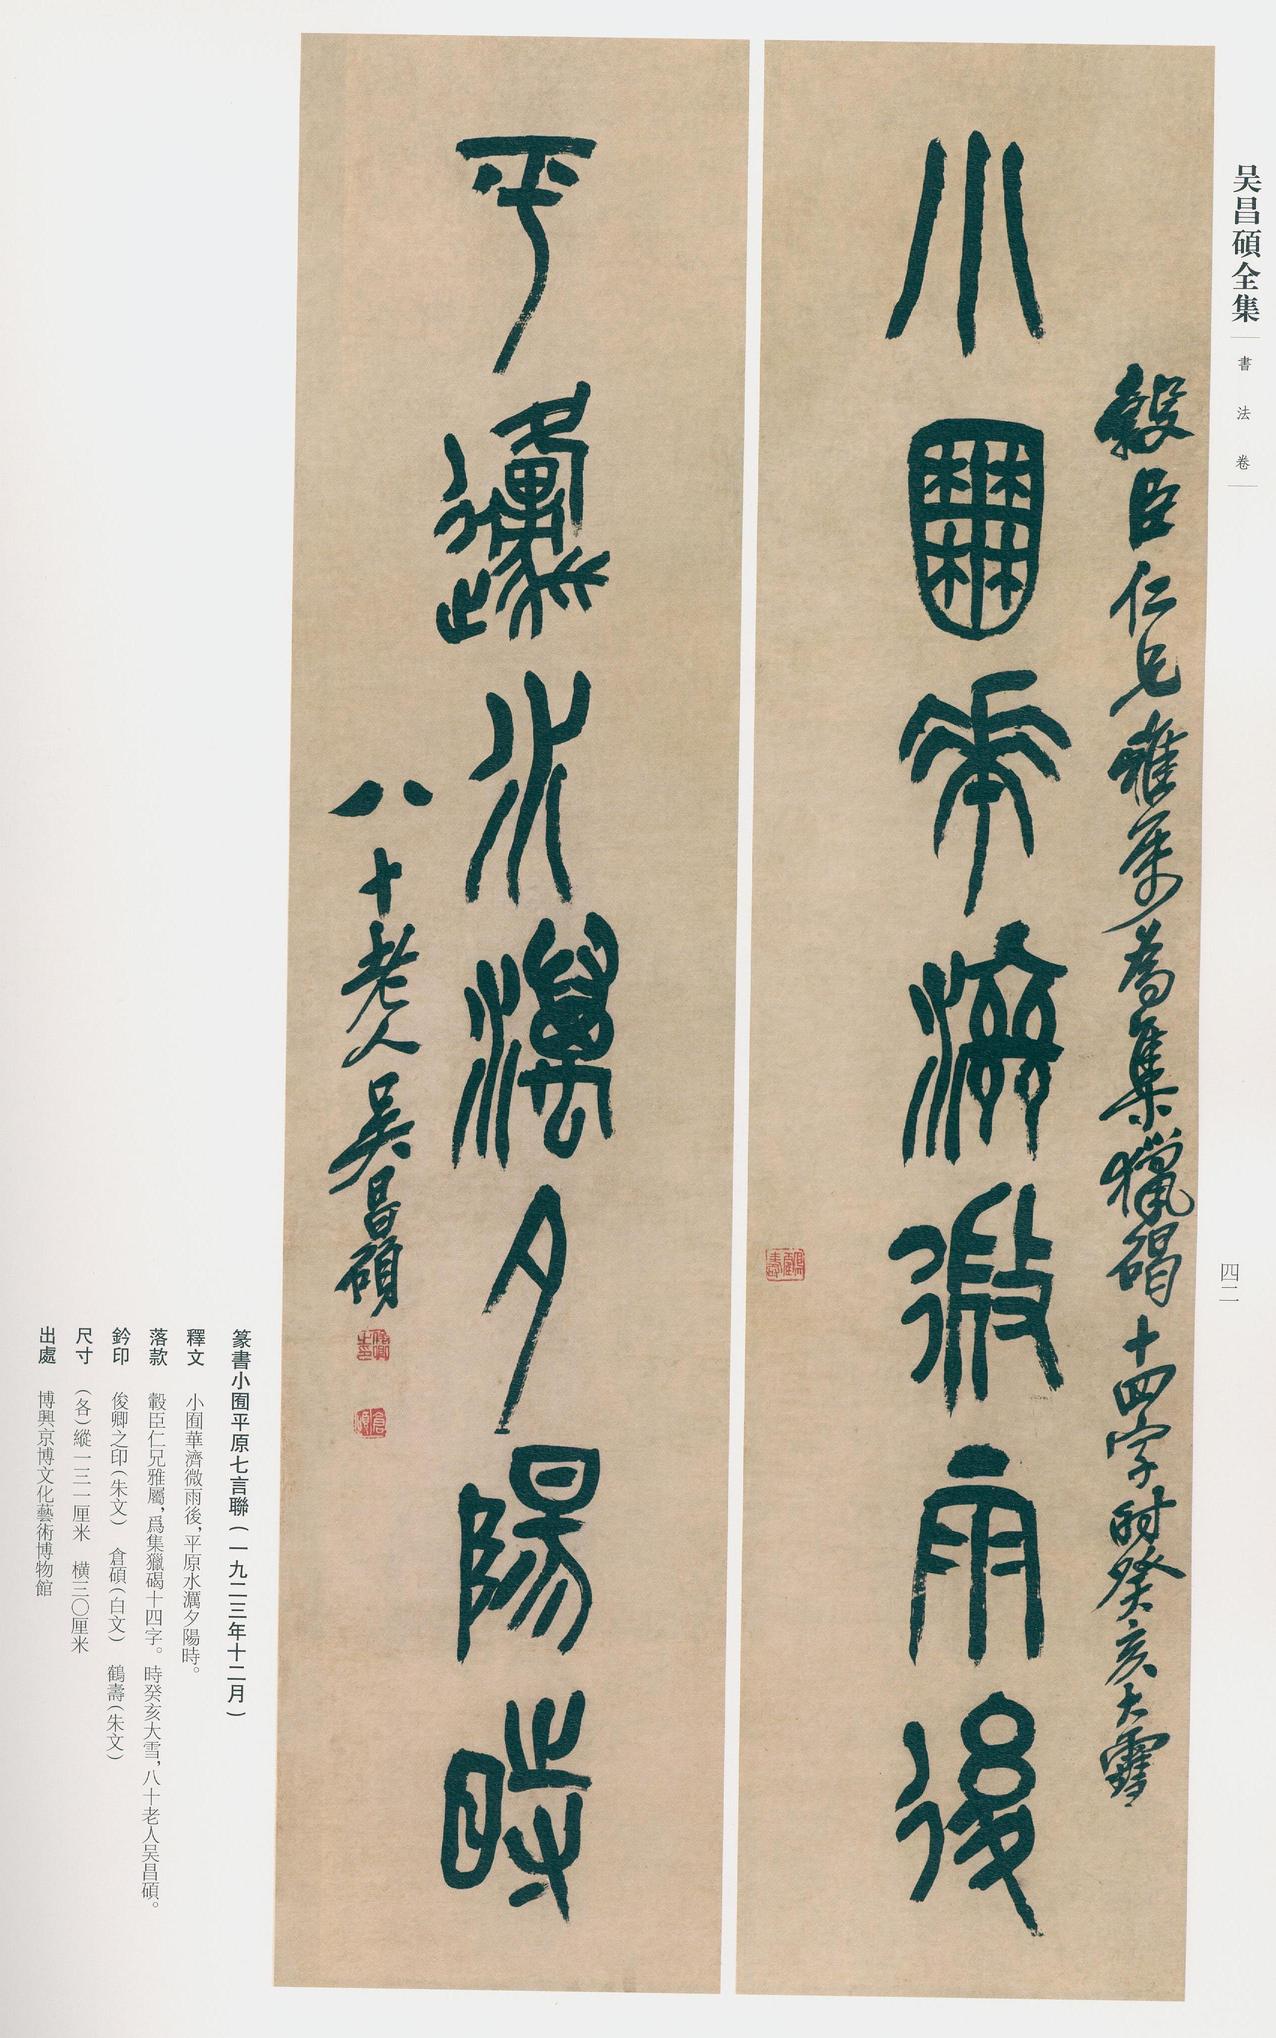 吴昌碩全集
書法卷
四二
小囿華濟微雨後
縠臣仁兄雅屬為集獵碣十四字時癸亥大雪
鶴壽
平邍水濿夕陽時
八十老人吴昌碩
俊卿之印
倉碩
篆書小囿平原七言聯（一九二三年十二月）
釋文 小囿華濟微雨後，平原水濿夕陽時。
落款 縠臣仁兄雅屬，爲集獵碣十四字。時癸亥大雪，八十老人吴昌碩。
鈐印 俊卿之印（朱文） 倉碩（白文） 鶴壽（朱文）
尺寸 （各）縱一三一厘米 橫三〇厘米
出處 博興京博文化藝術博物館